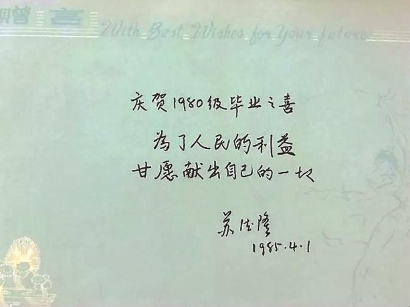 With Best Wishes for Your future
庆贺1980级毕业之喜
為了人民的利益
甘愿献出自己的一切
苏德隆
1985.4.1